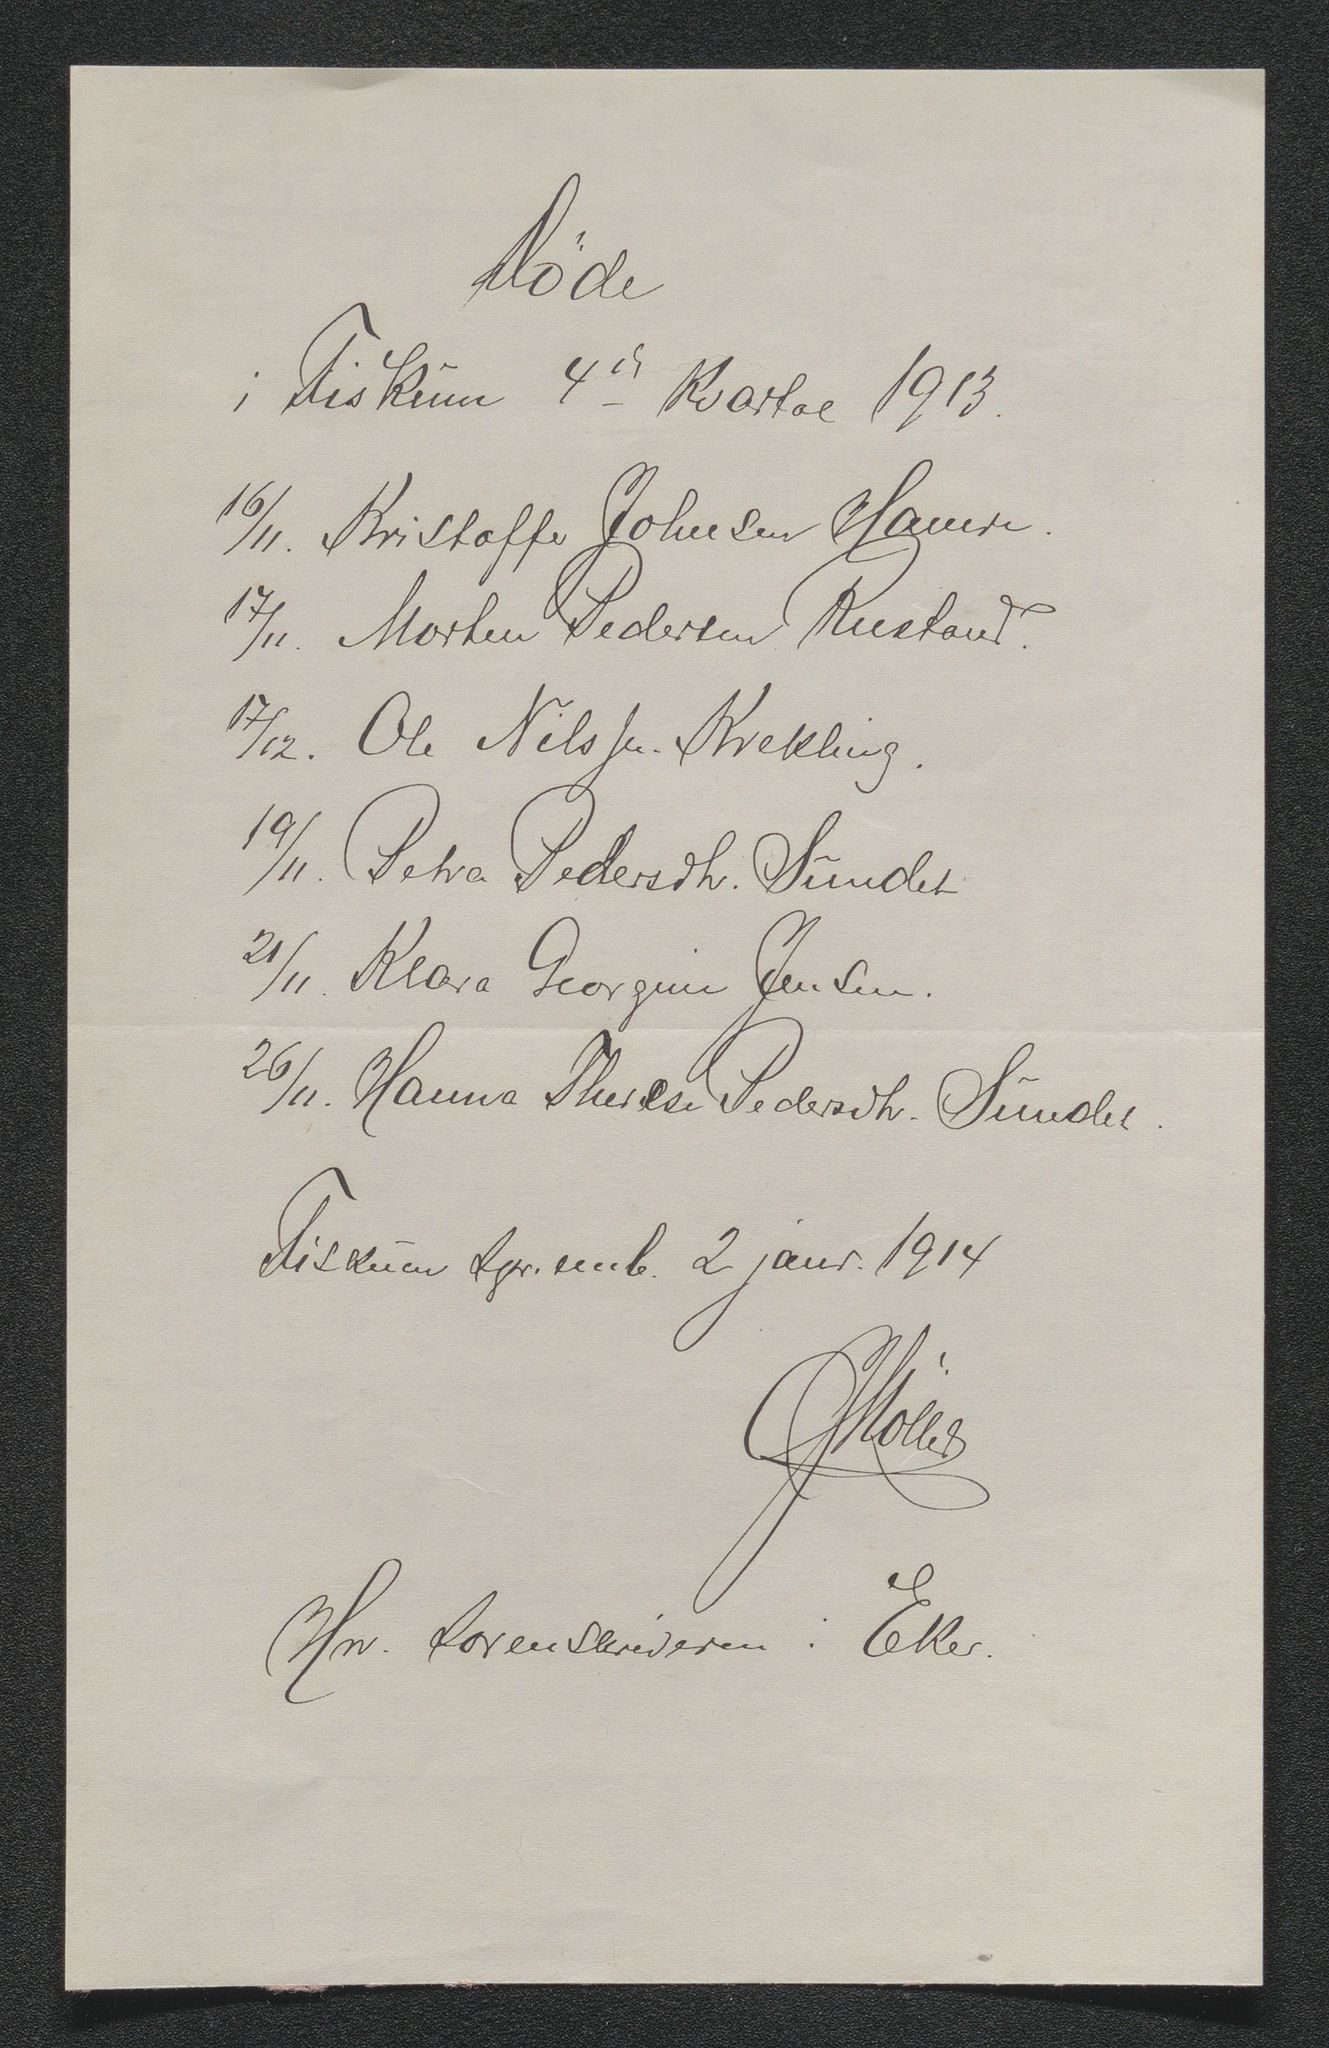 Döde
i Fiskum 4de Kvartal 1913.
16/11. Kristoffer Johnsen Hamre.
17/11. Morten Pedersen Rustand.
17/12. Ole Nilssen Krekling.
19/11. Petra Pedersdtr. Sundet
21/11. Klara Georgine Jensen.
26/11. Hanna Therese Pedersdtr. Sundet.
Fiskum spr.emb. 2 janr. 1914
J Möller
Hr. sorenskriveren i Eker.